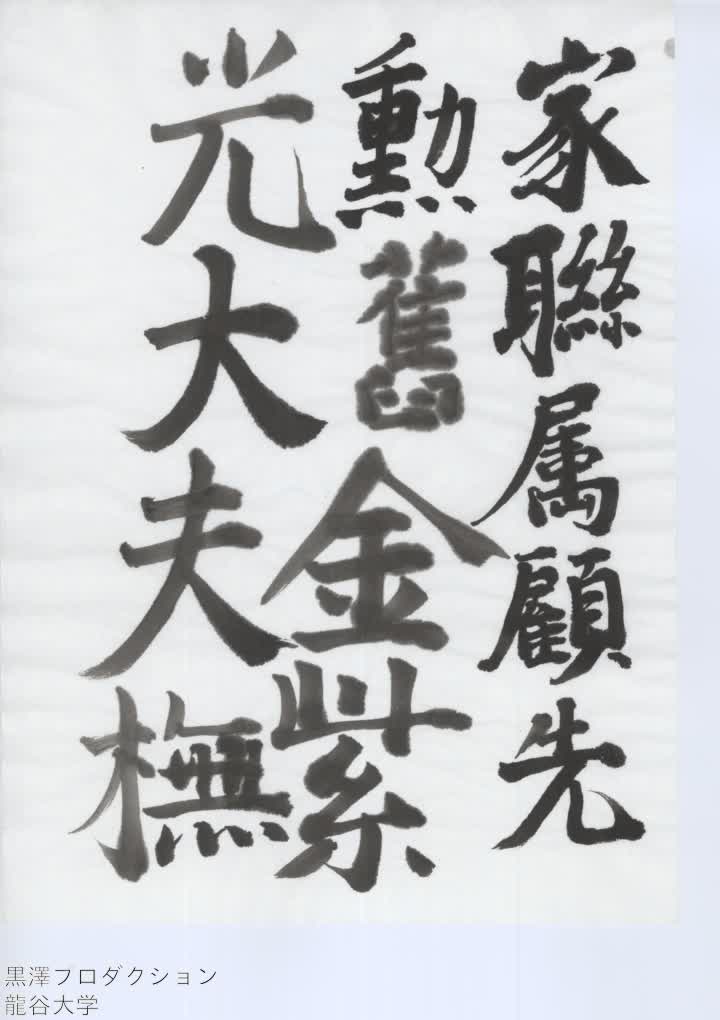 家聯属顧先
勲舊金紫
光大夫撫
黒澤プロダクション
龍谷大学